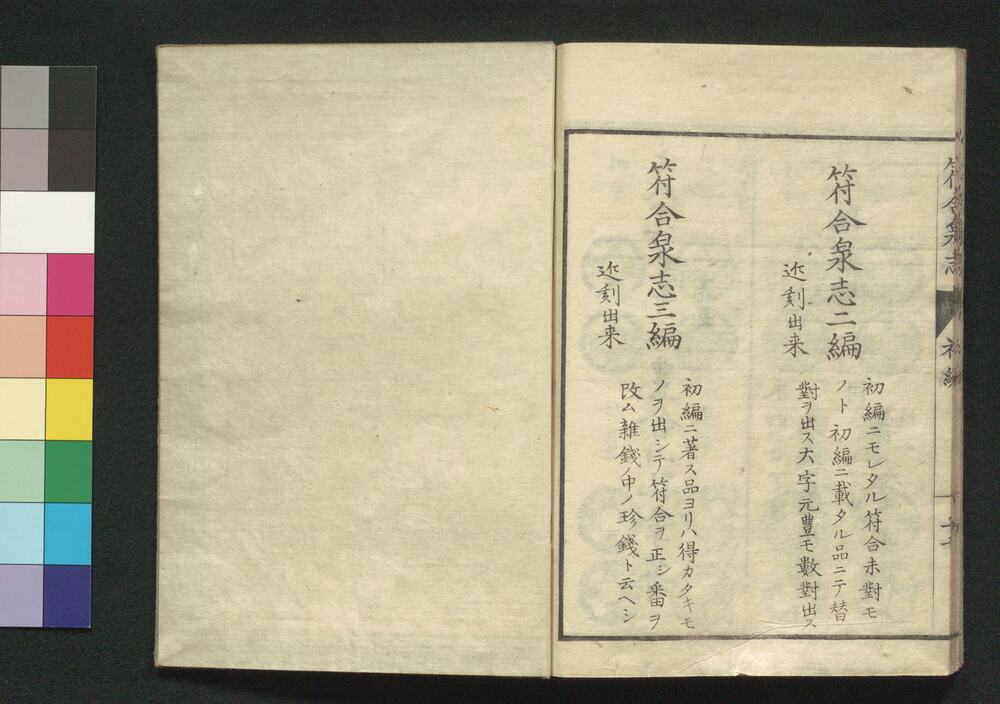 符合泉志
初編
符合泉志二編
近刻出来
初編ニモレタル符合未對モ
ノト初編ニ載タル品ニテ替
對ヲ出ス大字元豊モ數對出ス
符合泉志三編
近刻出来
初編ニ著ス品ヨリハ得カタキモ
ノヲ出シテ符合ヲ正シ番ヲ
改ム雜錢ノ中ノ珍錢ト云ヘシ